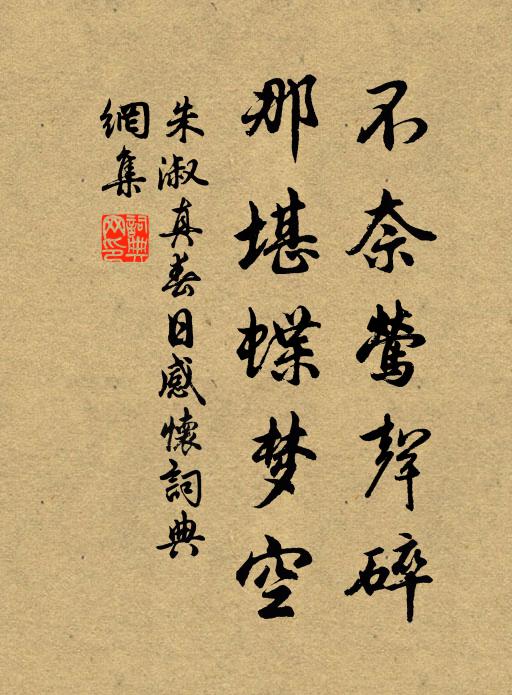 不奈莺聲碎
那堪蝶梦空
朱淑真春日感懷詞典
網集
詞典
网印